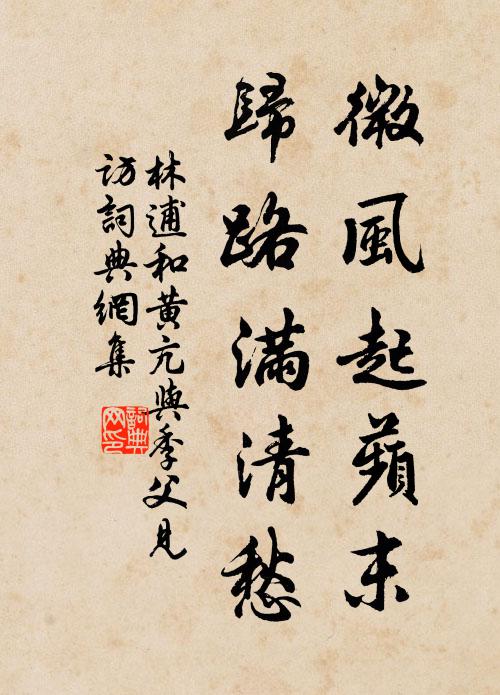 微風起蘋末
歸路滿清愁
林逋和黃亢與季父見
訪詞典網集
詞典
网印